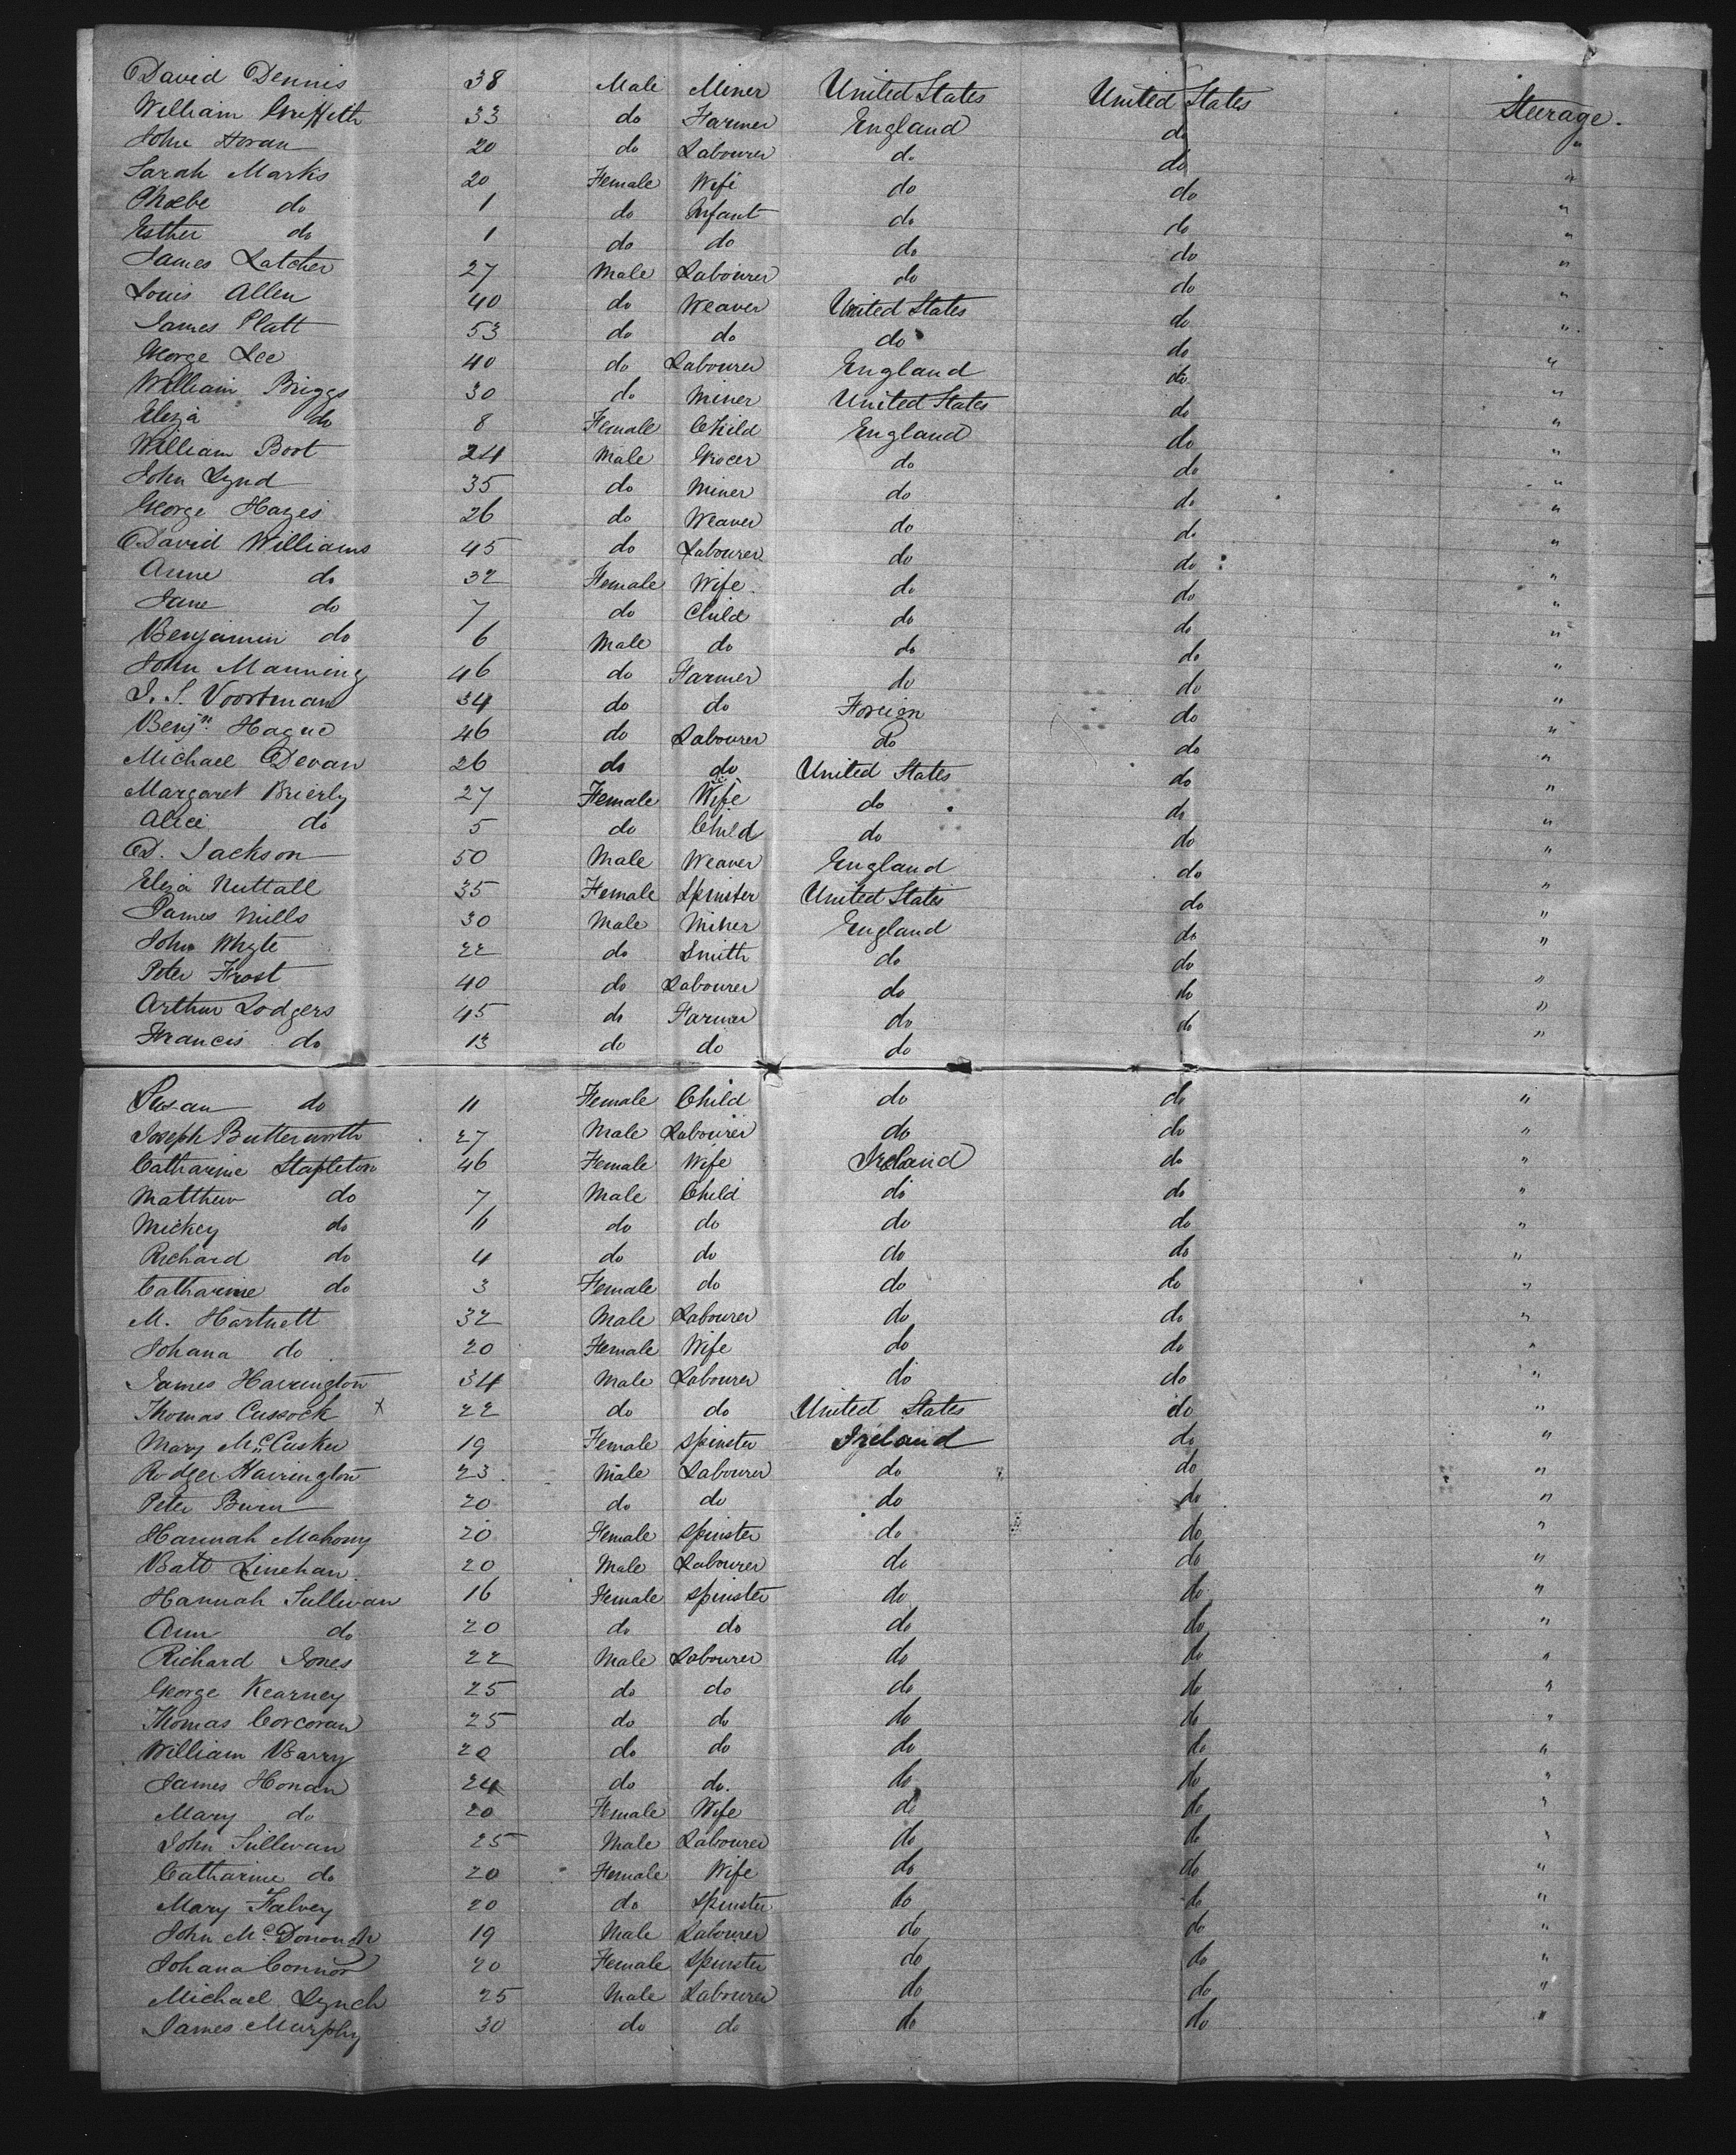 David Dennis 38 Male Miner United States United States Steerage.
William Griffith 33 do Farmer England do "
John Horan 20 do Labourer do do "
Sarah Marks 20 Female Wife do do "
Phœbe do 1 do Infant do do "
Esther do 1 do do do do "
James Latcher 27 Male Labourer do do "
Louis Allen 40 do Weaver United States do "
James Platt 53 do do do do "
George Lee 40 do Labourer England do "
William Briggs 30 do Miner United States do "
Eliza do 8 Female Child England do "
William Boot 24 Male Grocer do do "
John Lynd 35 do Miner do do "
George Hazes 26 do Weaver do do "
David Williams 45 do Labourer do do "
Anne do 32 Female Wife do do "
Jane do 7 do Child do do "
Benjamin do 6 Male do do do "
John Manning 46 do Farmer do do "
I. S. Voortman 34 do do Foreign do "
Benjn. Hague 46 do Labourer do do "
Michael Devan 26 do do United States do "
Margaret Brierly 27 Female Wife do do "
Alice do 5 do Child do do "
D. Jackson 50 Male Weaver England do "
Eliza Nuttall 35 Female Spinster United States do "
James Mills 30 Male Miner England do "
John Whyte 22 do Smith do do "
Peter Frost 40 do Labourer do do "
Arthur Lodgers 45 do Farmer do do "
Francis do 13 do do do "
Susan do 11 Female Child do do "
Joseph Butterworth 27 Male Labourer do do "
Catharine Stapleton 46 Female Wife Ireland do "
Matthew do 7 Male Child do do "
Mickey do 6 do do do do "
Richard do 4 do do do do "
Catharine do 3 Female do do do "
M. Hartnett 32 Male Labourer do do "
Johana do 20 Female Wife do do "
James Harrington 34 Male Labourer do do "
Thomas Cussock x 22 do do United States do "
Mary McCusker 19 Female Spinster Ireland do "
Rodger Harrington 23 Male Labourer do do "
Peter Burn 20 do do do do "
Hannah Mahony 20 Female Spinster do do "
Batt Linehan 20 Male Labourer do do "
Hannah Sullivan 16 Female Spinster do do "
Ann do 20 do do do do "
Richard Jones 22 Male Labourer do do "
George Kearney 25 do do do do "
Thomas Corcoran 25 do do do do "
William Barry 20 do do do do "
James Honan 24 do do. do do "
Mary do 20 Female Wife do do "
John Sullivan 25 Male Labourer do do "
Catharine do 20 Female Wife do do "
Mary Falvey 20 do Spinster do do "
John McDonough 19 Male Labourer do do "
Johana Connor 20 Female Spinster do do "
Michael Lynch 25 Male Labourer do do "
James Murphy 30 do do do do "